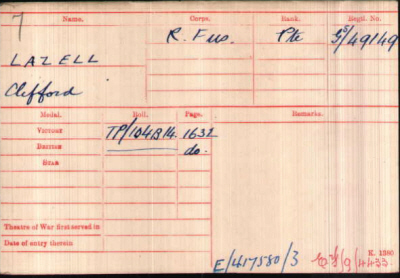 7
Name. Corps. Rank. Regtl. No.
R. Fus. Pte GS/49149
LAZELL
Clifford
Medal. Roll. Page. Remarks.
VICTORY TP/104B14. 1632
BRITISH do.
STAR
Theatre of War first served in
Date of entry therein
K. 1380
E/417580/3